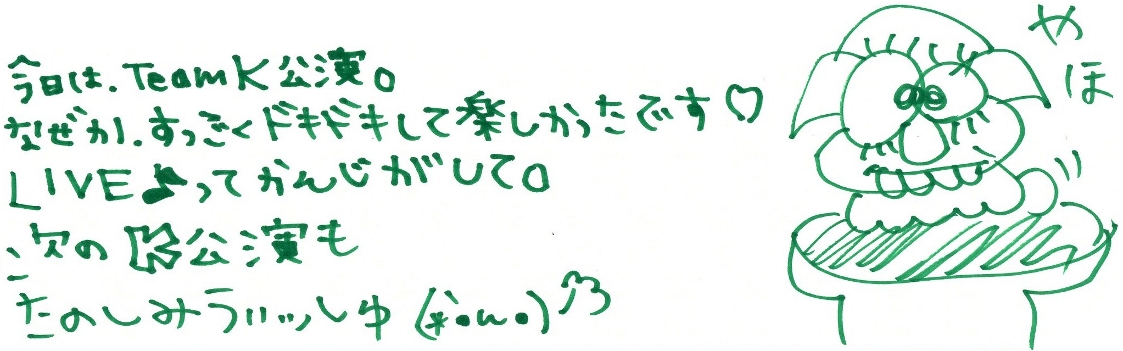 今日は.TeamK公演。
なぜか.すっごくドキドキして楽しかったです♡
LIVE♪ってかんじがして。
次のK公演も
たのしみラハッしゅ (*･ω･)
やほ